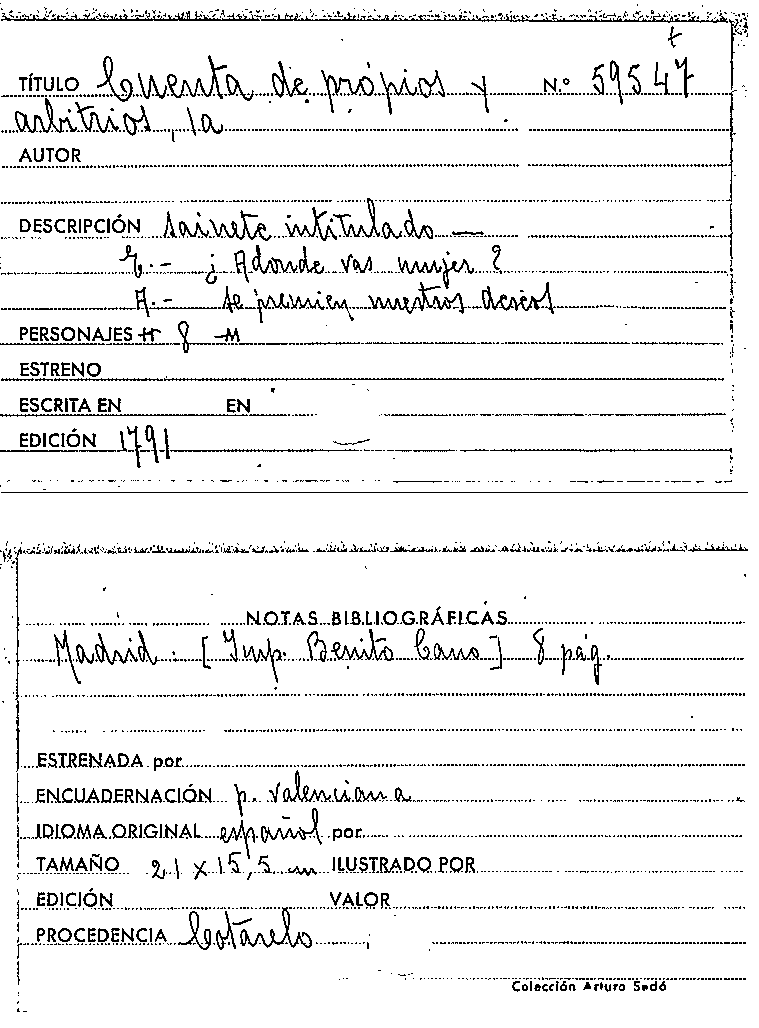 t
TÍTULO Cuenta de própios y N.º 59547
arbitrios, la
AUTOR
DESCRIPCIÓN sainete intitulado —
E.- ¿Adonde vas mujer?
A.- se premien nuestros deseos
PERSONAJES H 8 M
ESTRENO
ESCRITA EN EN
EDICIÓN 1791
NOTAS BIBLIOGRÁFICAS
Madrid: [Imp. Benito Cano] 8 pág.
ESTRENADA por
ENCUADERNACIÓN p. valenciana
IDIOMA ORIGINAL español por
TAMAÑO 21 x 15,5 cm ILUSTRADO POR
EDICIÓN VALOR
PROCEDENCIA Cotarelo
Colección Arturo Sedó